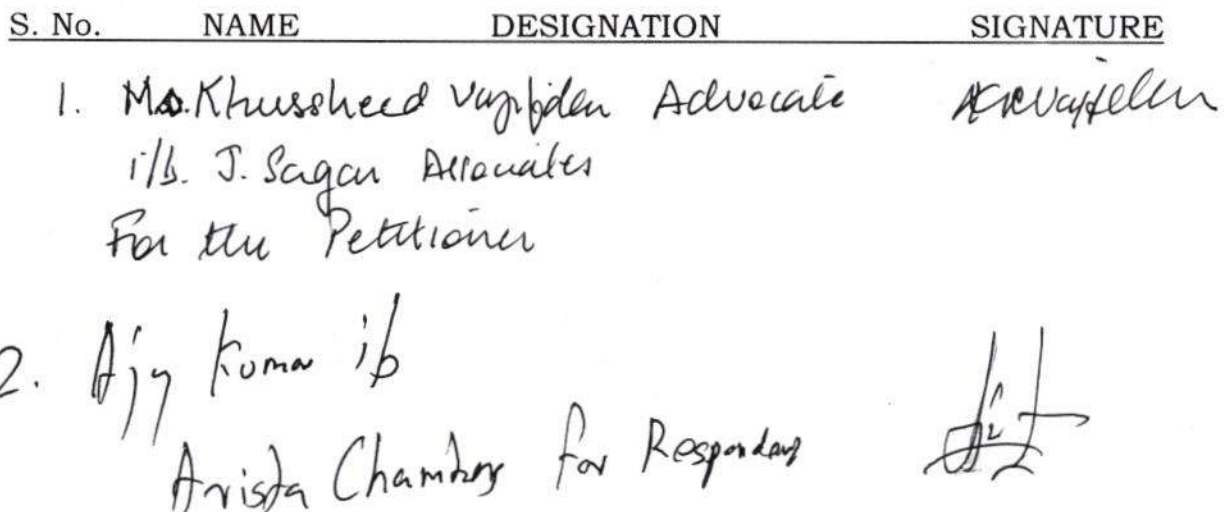 S. No. NAME DESIGNATION SIGNATURE
1. Ms. Khursheed Advocate
i/b. J. Sagar Associates
For the Petitioner
2. Ajay Kumar i/b
Arista Chambers for Respondent